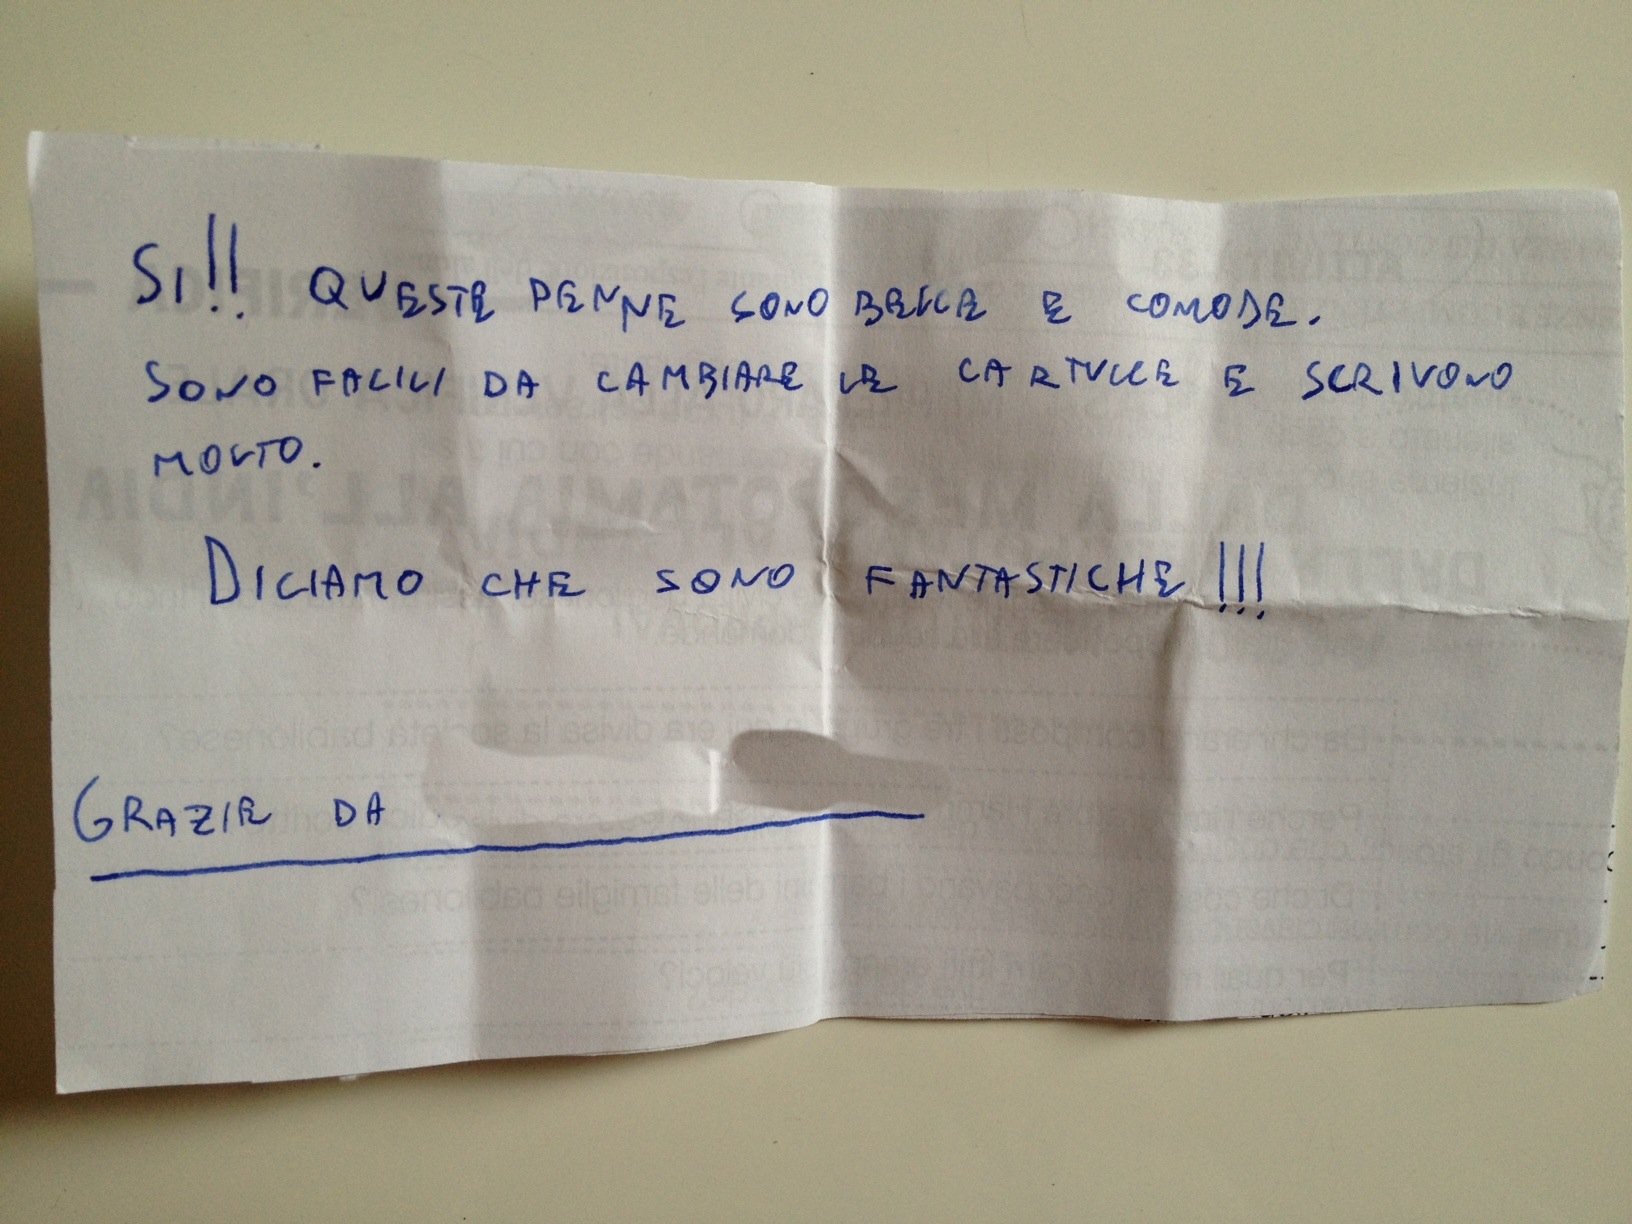 SI!! QUESTE PENNE SONO BELLE E COMODE.
SONO FACILI DA CAMBIARE LE CARTUCCE E SCRIVONO
MOLTO.
DICIAMO CHE SONO FANTASTICHE!!!
GRAZIE DA